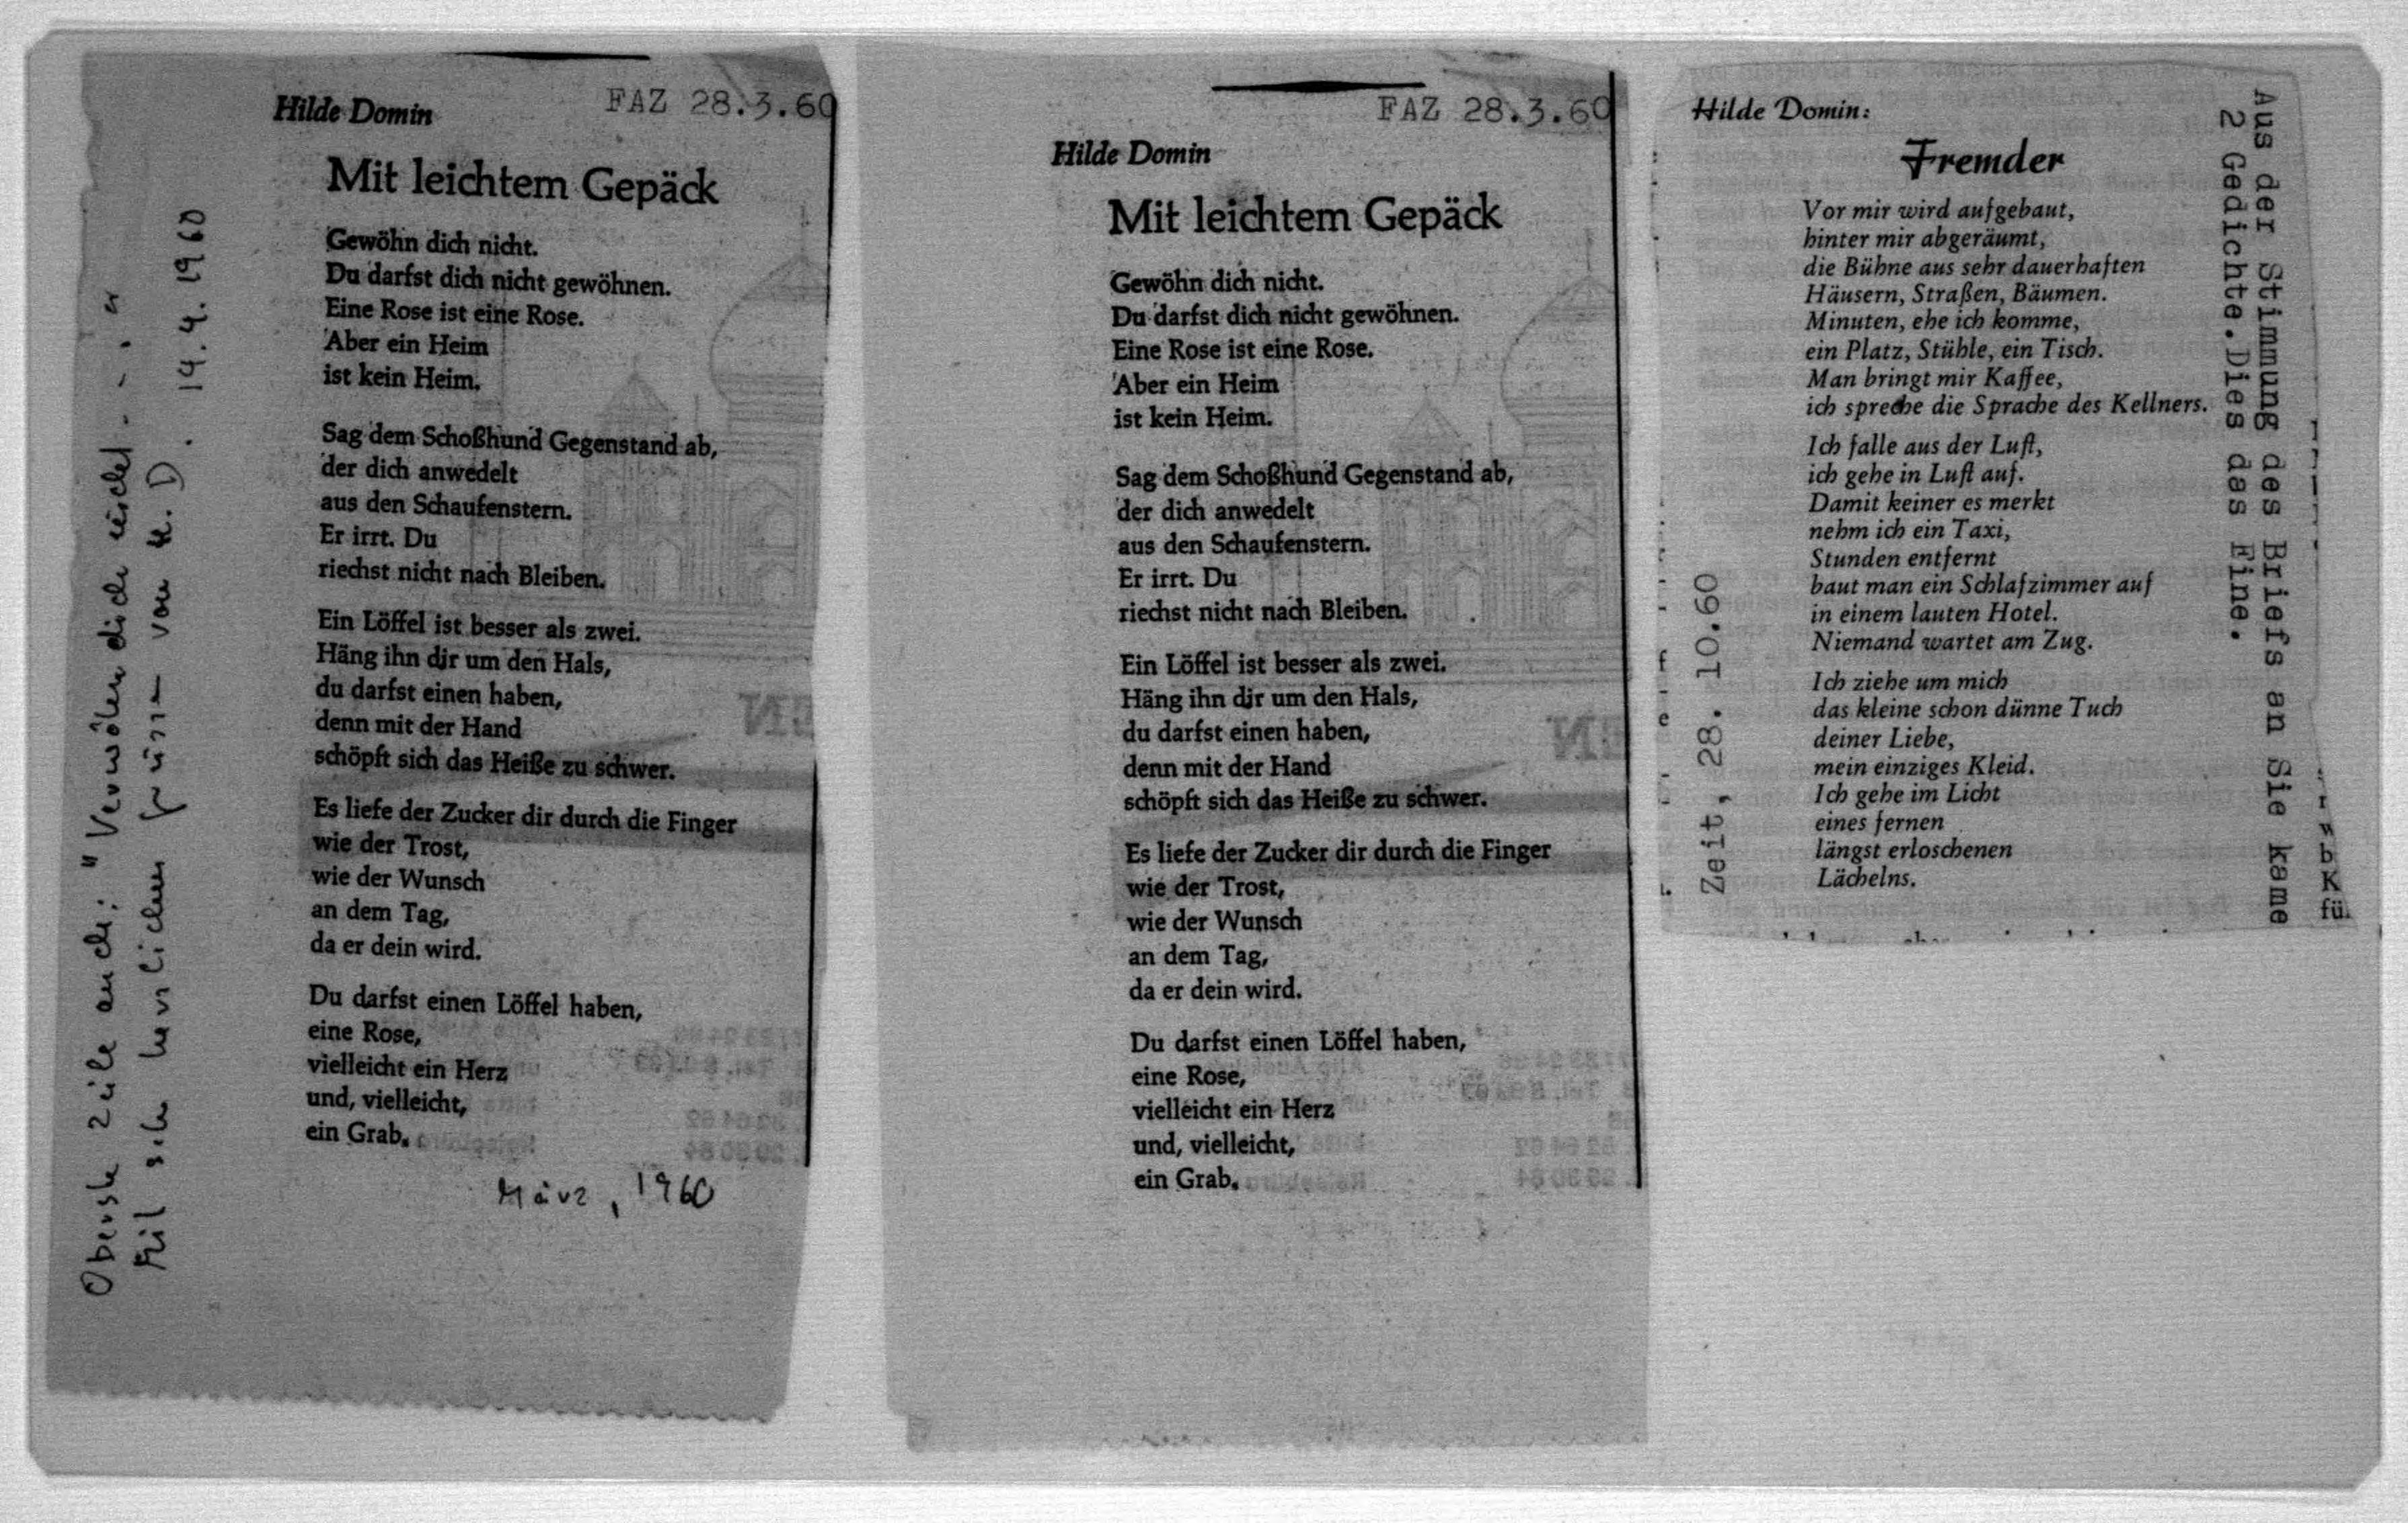 Hilde Domin
FAZ 28.3.60
Mit leichtem Gepäck
Gewöhn dich nicht.
Du darfst dich nicht gewöhnen.
Eine Rose ist eine Rose.
Aber ein Heim
ist kein Heim.
Sag dem Schoßhund Gegenstand ab,
der dich anwedelt
aus den Schaufenstern.
Er irrt. Du
riechst nicht nach Bleiben.
Ein Löffel ist besser als zwei.
Häng ihn dir um den Hals,
du darfst einen haben,
denn mit der Hand
schöpft sich das Heiße zu schwer.
Es liefe der Zucker dir durch die Finger
wie der Trost,
wie der Wunsch
an dem Tag,
da er dein wird.
Du darfst einen Löffel haben,
eine Rose,
vielleicht ein Herz
und, vielleicht,
ein Grab.
März, 1960
Oberste Zeile auch: "Verwöhn dich nicht - - . "
Mit sehr herzlichem Gruss von H. D. 14.4.1960
FAZ 28.3.60
Hilde Domin
Mit leichtem Gepäck
Gewöhn dich nicht.
Du darfst dich nicht gewöhnen.
Eine Rose ist eine Rose.
Aber ein Heim
ist kein Heim.
Sag dem Schoßhund Gegenstand ab,
der dich anwedelt
aus den Schaufenstern.
Er irrt. Du
riechst nicht nach Bleiben.
Ein Löffel ist besser als zwei.
Häng ihn dir um den Hals,
du darfst einen haben,
denn mit der Hand
schöpft sich das Heiße zu schwer.
Es liefe der Zucker dir durch die Finger
wie der Trost,
wie der Wunsch
an dem Tag,
da er dein wird.
Du darfst einen Löffel haben,
eine Rose,
vielleicht ein Herz
und, vielleicht,
ein Grab.
Hilde Domin:
Fremder
Vor mir wird aufgebaut,
hinter mir abgeräumt,
die Bühne aus sehr dauerhaften
Häusern, Straßen, Bäumen.
Minuten, ehe ich komme,
ein Platz, Stühle, ein Tisch.
Man bringt mir Kaffee,
ich spreche die Sprache des Kellners.
Ich falle aus der Luft,
ich gehe in Luft auf.
Damit keiner es merkt
nehm ich ein Taxi,
Stunden entfernt
baut man ein Schlafzimmer auf
in einem lauten Hotel.
Niemand wartet am Zug.
Ich ziehe um mich
das kleine schon dünne Tuch
deiner Liebe,
mein einziges Kleid.
Ich gehe im Licht
eines fernen
längst erloschenen
Lächelns.
Zeit, 28. 10.60
Aus der Stimmung des Briefs an Sie kame
2 Gedichte.Dies das Eine.